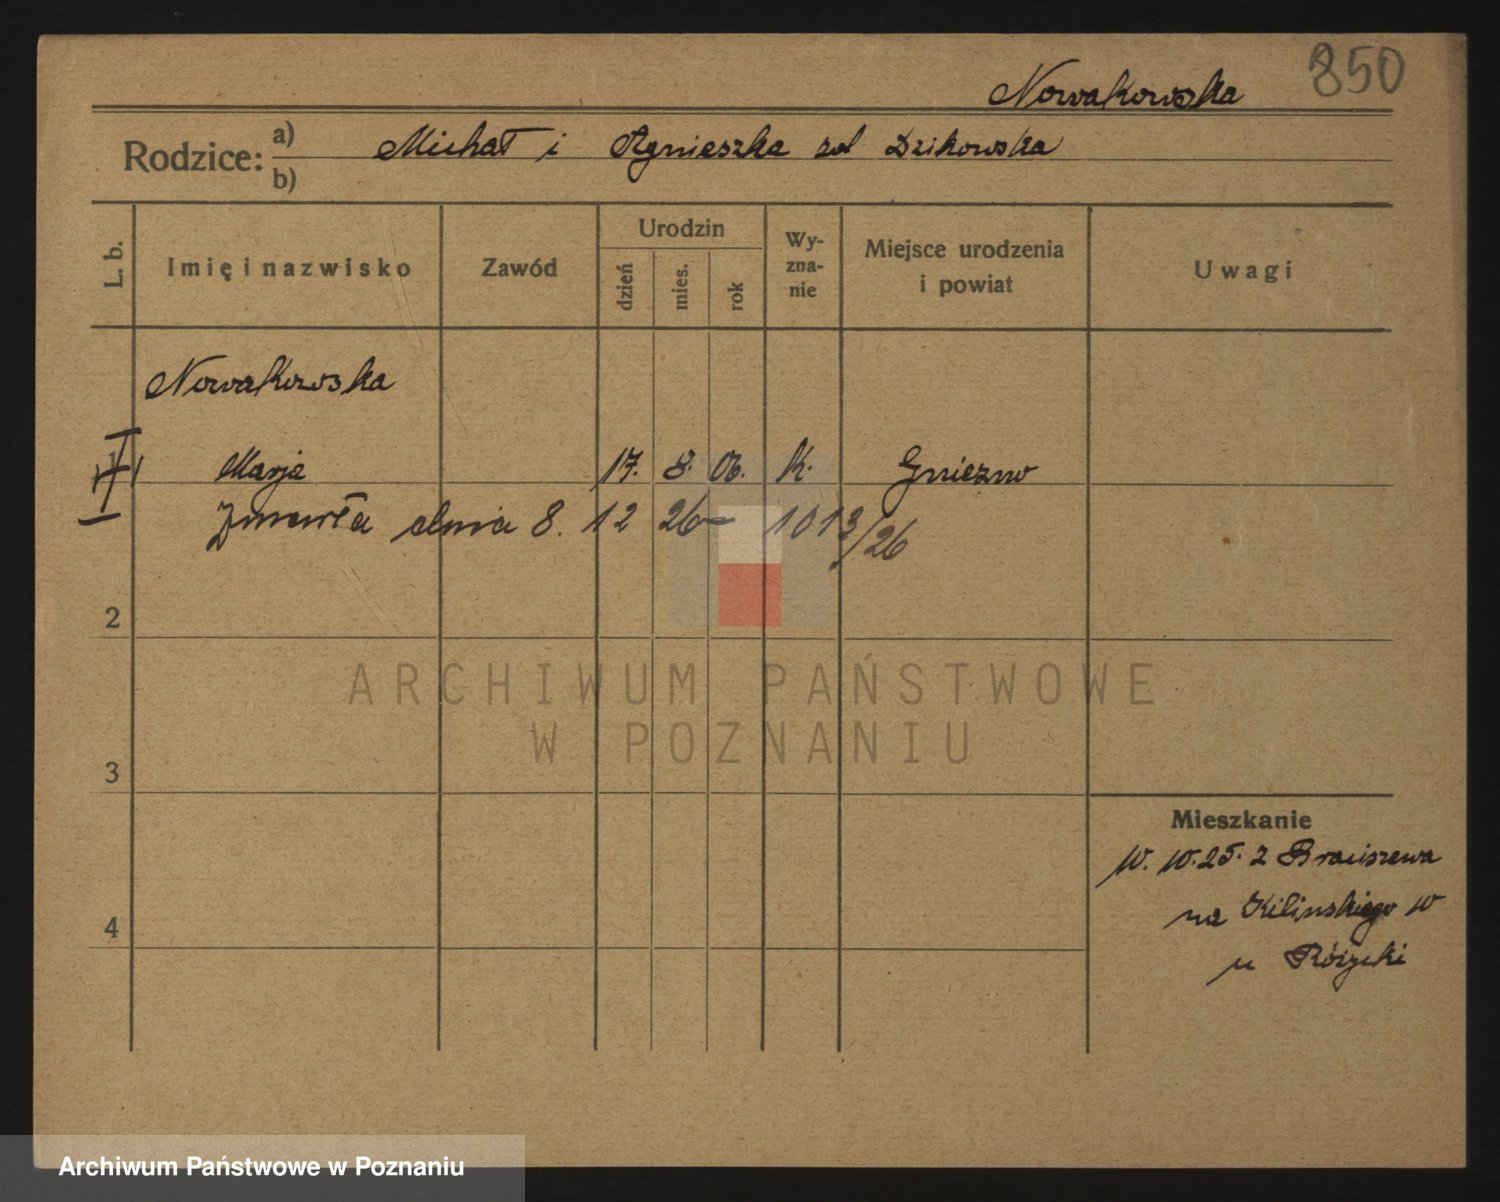 Nowakowska 850
Rodzice: a) Michał i Agnieszka zd Dzikowska
b)
L. b. Imię i nazwisko Zawód Urodzin dzień mies. rok Wy-zna-nie Miejsce urodzenia i powiat Uwagi
Nowakowska
Marja 17. 8. 06. K. Gniezno
Zmarła dnia 8. 12 26 – 1013/26
2
ARCHIWUM PAŃSTWOWE
W POZNANIU
3
Mieszkanie
10. 10. 25. z Braciszewa
4
na Kilinskiego 10
u Różycki
Archiwum Państwowe w Poznaniu